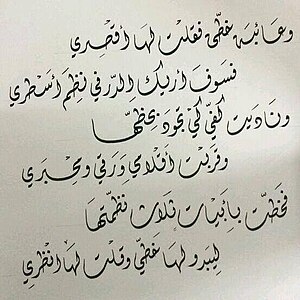 وعائبة خطّي فقلت لها أقصري
فسوف أريك الدّر في نظم أسطري
وناديت كفّي كي تجود بخطّها
وقرّبت أقلامي ورقي ومحبري
فخطّت بأبيات ثلاث نظمتها
ليبدو لها خطّي وقلت لها انظري